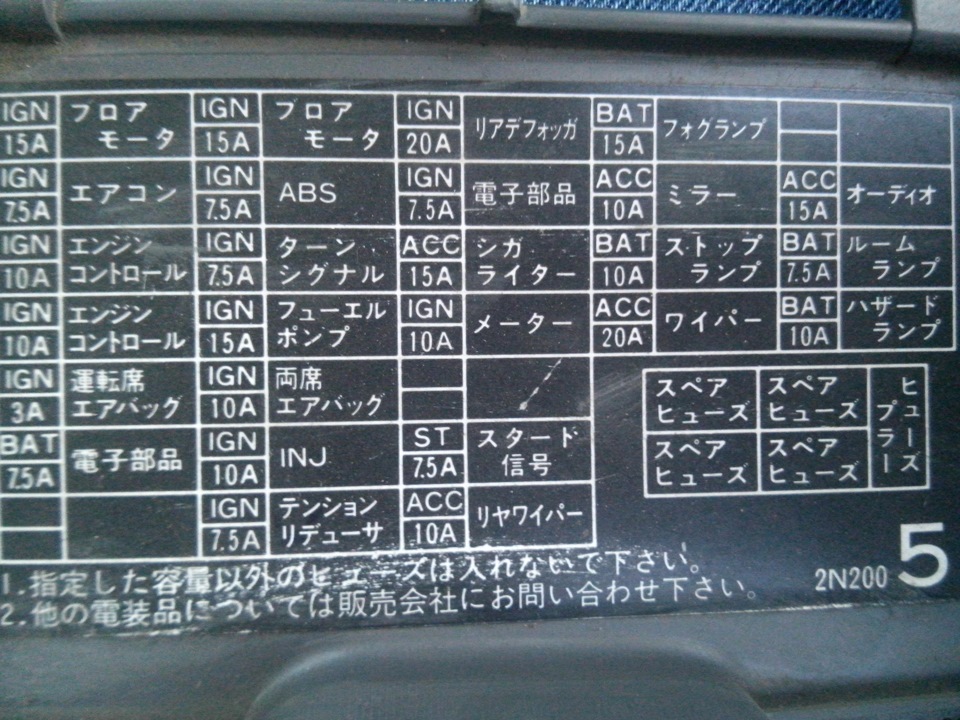 IGN 15A ブロアモータ IGN 15A ブロアモータ IGN 20A リアデフォッガ BAT 15A フォグランプ
IGN 7.5A エアコン IGN 7.5A ABS IGN 7.5A 電子部品 ACC 10A ミラー ACC 15A オーディオ
IGN 10A エンジンコントロール IGN 7.5A ターンシグナル ACC 15A シガライター BAT 10A ストップランプ BAT 7.5A ルームランプ
IGN 10A エンジンコントロール IGN 15A フューエルポンプ IGN 10A メーター ACC 20A ワイパー BAT 10A ハザードランプ
IGN 3A 運転席エアバッグ IGN 10A 両席エアバッグ
BAT 7.5A 電子部品 IGN 10A INJ ST 7.5A スタード信号
IGN 7.5A テンションリデューサ ACC 10A リヤワイパー
スペアヒューズ スペアヒューズ ヒューズプラー
スペアヒューズ スペアヒューズ
1.指定した容量以外のヒューズは入れないで下さい。
2.他の電装品については販売会社にお問い合わせ下さい。
2N200 5